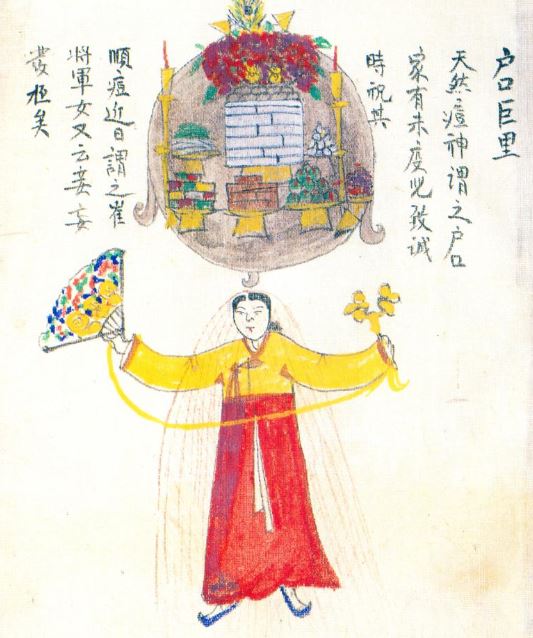 户口巨里
天然痘神謂之户口
家有未度兒致誠
時祝其
順痘近日謂之崔
將軍女又云妾妄
發極矣